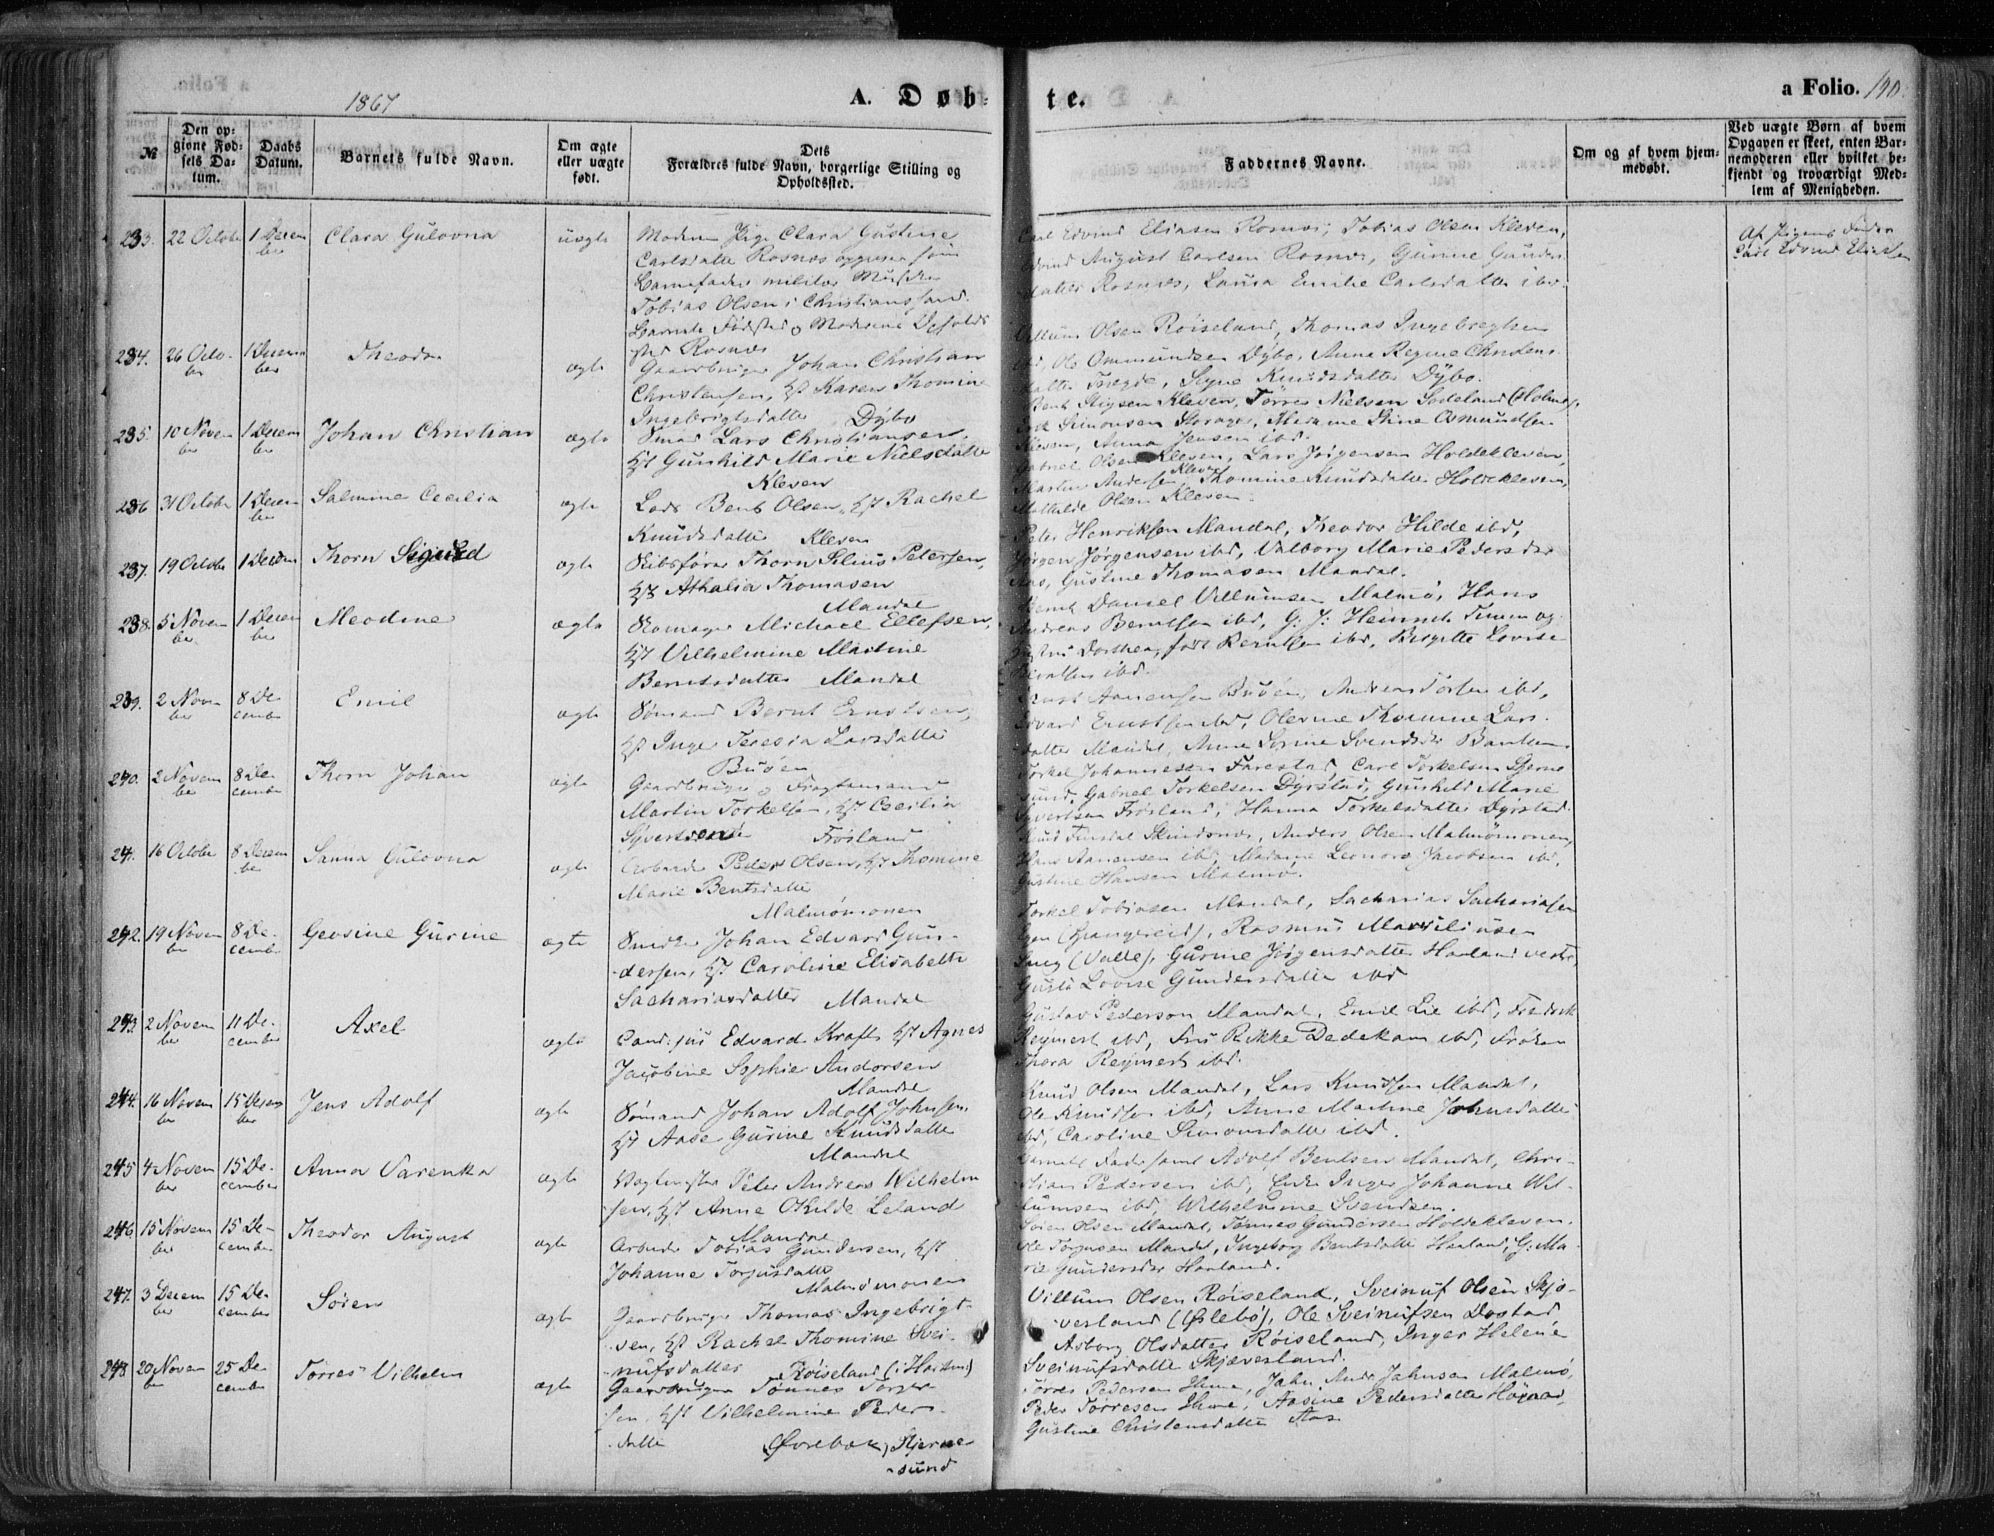 1867
A. Døb-
te.
a Folio. 190.
№
Den op-
givne Fød-
sels Da-
tum.
Daabs
Datum.
Barnets fulde Navn.
Om ægte
eller uægte
født.
Dets
Forældres fulde Navn, borgerlige Stilling og
Opholdssted.
Faddernes Navne.
Om og af hvem hjem-
medøbt.
Ved uægte Børn af hvem
Opgaven er skeet, enten Bar-
nemoderen eller hvilket be-
kjendt og troværdigt Med-
lem af Menigheden.
233. 22 Octobr 1 Decem
ber
Clara Gulovna
uægte
Moderen Pige Clara Gustine
Carlsdatter Rosnæs opgiver som
Barnefader militær Musiker
Tobias Olsen i Christianssand.
Barnets Fødsted og Moderens Opholds
sted Rosnæs
Carl Edvind Eliasen Rosnæs, Tobias Olsen Kleven,
Edvind August Carlsen Rosnæs, Gunne Gunders
datter Rosnæs, Laura Emilie Carlsdatter ibd.
Af Pigens Fader
Carl Edvind Eliasen
234. 26 Octo-
ber
1 Decem
ber
Theodor
ægte
Gaardbruger Johan Christian
Christensen, Hst Karen Thomine
Ingebrigtsdatter Dybo
Villum Olsen Røiseland, Thomas Ingebregtsen
ibd, Ole Ommundsen Dybo, Anne Regine Christens
datter Trægde, Signe Knudsdatter Dybo.
235. 10 Novem
ber
1 Decem
ber
Johan Christian
ægte
Smed Lars Christiansen,
Hst Gunhild Marie Nielsdatter
Kleven
Bent Stigsen Kleven, Tørres Nielsen Sodeland (Holme),
Simonsen Storager, Madame Stine Osmundsen
Kleven, Anna Jensen ibd.
236 31 Octobr 1 Decem
ber
Salmine Cecilia
ægte
Lods Bent Olsen, Hst Rachel
Knudsdatter Kleven
Gabriel Olsen Kleven, Lars Jørgensen Holdekleven,
Martin Andersen Kleven, Thomine Knudsdatter Holdekleven,
Mathilde Olsen Kleven.
237. 19 Octobr 1 Decem
Thorn Sigurd
ægte
Skibsfører Thorn Silius Petersen,
Hst Athalia Thomasen
Mandal
Peter Henriksen Mandal, Theodor Hilde ibd,
Jørgen Jørgensen ibd, Valborg Marie Pedersdtr
Aas, Gustine Thomasen Mandal.
238. 5 Novem
ber
1 Decem
ber
Meodine
ægte
Skomager Michael Ellefsen,
Hst Vilhelmine Martine
Berntsdatter Mandal
Bernt Daniel Villumsen Malmø, Hans
Andreas Berntsen ibd, G. J. Heinrich Timm og
Hustru Dorthea, født Berntsen ibd, Birgitte Lovise
ibd.
239. 2 Novem
ber
8 De-
cember
Emil
ægte
Sømand Bernt Erntsen,
Hst Inger Teresia Larsdatter
Buøen
Aanensen Buøen, Andreas Torsen ibd,
Edvard Ernstsen ibd, Olevine Thomine Lars-
datter Mandal, Anne Serine Svendsdtr Banken.
240. 2 Novem
ber
8 De-
cember
Thorn Johan
ægte
Gaardbruger og Fragtemand
Martin Torkelsen, Hst Cecilia
Syvertsen Frøsland
Torkel Johannesen Farestad, Carl Torkelsen Stjerne
sund, Gabriel Torkelsen Dyrstad, Gunhild Marie
Syvertsen Frøsland, Hanna Torkelsdatter Dyrstad.
241. 16 Octobr 8 Decem
ber
Sanna Gulovna
ægte
Arbeider Peder Olsen, Hst Thomine
Marie Bentsdatter
Malmømonen
Knud Finsdal Skinsnæs, Anders Olsen Malmømonen,
Hans Aanensen ibd, Madame Leonora Jacobsen ibd,
Gustine Hansen Malmø.
242. 19 Novem
ber
8 De-
cember
Gevsine Gurine
ægte
Smed Johan Edvard Gun-
dersen, Hst Caroline Elisabeth
Sachariasdatter Mandal
Torkel Tobiasen Mandal, Sacharias Sachariasen
(Spangereid), Rasmus Marsiliusen
(Valle), Gurine Jørgensdatter Harland vestre,
Gusta Lovise Gundersdatter ibd
243. 2 Novem
ber
11 De-
cember
Axel
ægte
Cand. jur Edvard Kraft, Hst Agnes
Jacobine Sophie Andorsen
Mandal
Gustav Pederson Mandal, Emil Lie ibd, Fredrik
Reymert ibd, Fru Rikke Dedekam ibd, Frøken
Thora Reymert ibd.
244. 16 Novem
ber
15 Decem
ber
Jens Adolf
ægte
Sømand Johan Adolf Johnsen,
Hst Aase Gurine Knudsdatter
Mandal
Knud Olsen Mandal, Lars Knudsen Mandal,
Ole Knudsen ibd, Anne Martine Johnsdatter
ibd, Caroline Simonsdatter ibd.
245 4 Novem
ber
15 De-
cember
Anna Varenka
ægte
Vagtmester Peter Andreas Wilhelm
sen, Hst Anne Othilde Leland
Mandal
Barnets Fader samt Adolf Bentsen Mandal, Chri-
stian Pedersen ibd, Enke Inger Johanne Wil-
lumsen ibd, Wilhelmine Svendsen.
246 15 Novem
ber
15 De-
cember
Theodor August
ægte
Arbeider Tobias Gundersen, Hst
Johanne Torjusdatter
Malmømonen
Søren Olsen Mandal, Tønnes Gundersen Holdekleven,
Ole Torjusen Mandal, Ingeborg Bentsdatter Harland, G. Ma-
rie Gundersdtr Harland.
247. 3 Decem
ber
15 De-
cember
Søren
ægte
Gaardbruger Thomas Ingebrigt-
sen, Hst Rachel Thomine Svei-
nufsdatter Røiseland (i Harkm)
Villum Olsen Røiseland, Sveinuf Olsen Skjæ-
verland (Øslebø), Ole Sveinufsen Dostad
Asborg Olsdatter Røiseland, Inger Helene
Sveinufsdatter Skjæverland.
248 20 Novem
ber
25 De-
cember
Tørres Vilhelm
ægte
Gaardbruger Tønnes Torger
sen, Hst Vilhelmine Peders-
datter Øvrebøk, Stjerne-
sund
Tørres Pedersen Ihme, Jahn And. Jahnsen Malmø,
Peder Tørresen Ihme, Aasine Pedersdatter Høinæs,
Gustine Christensdatter Aas.